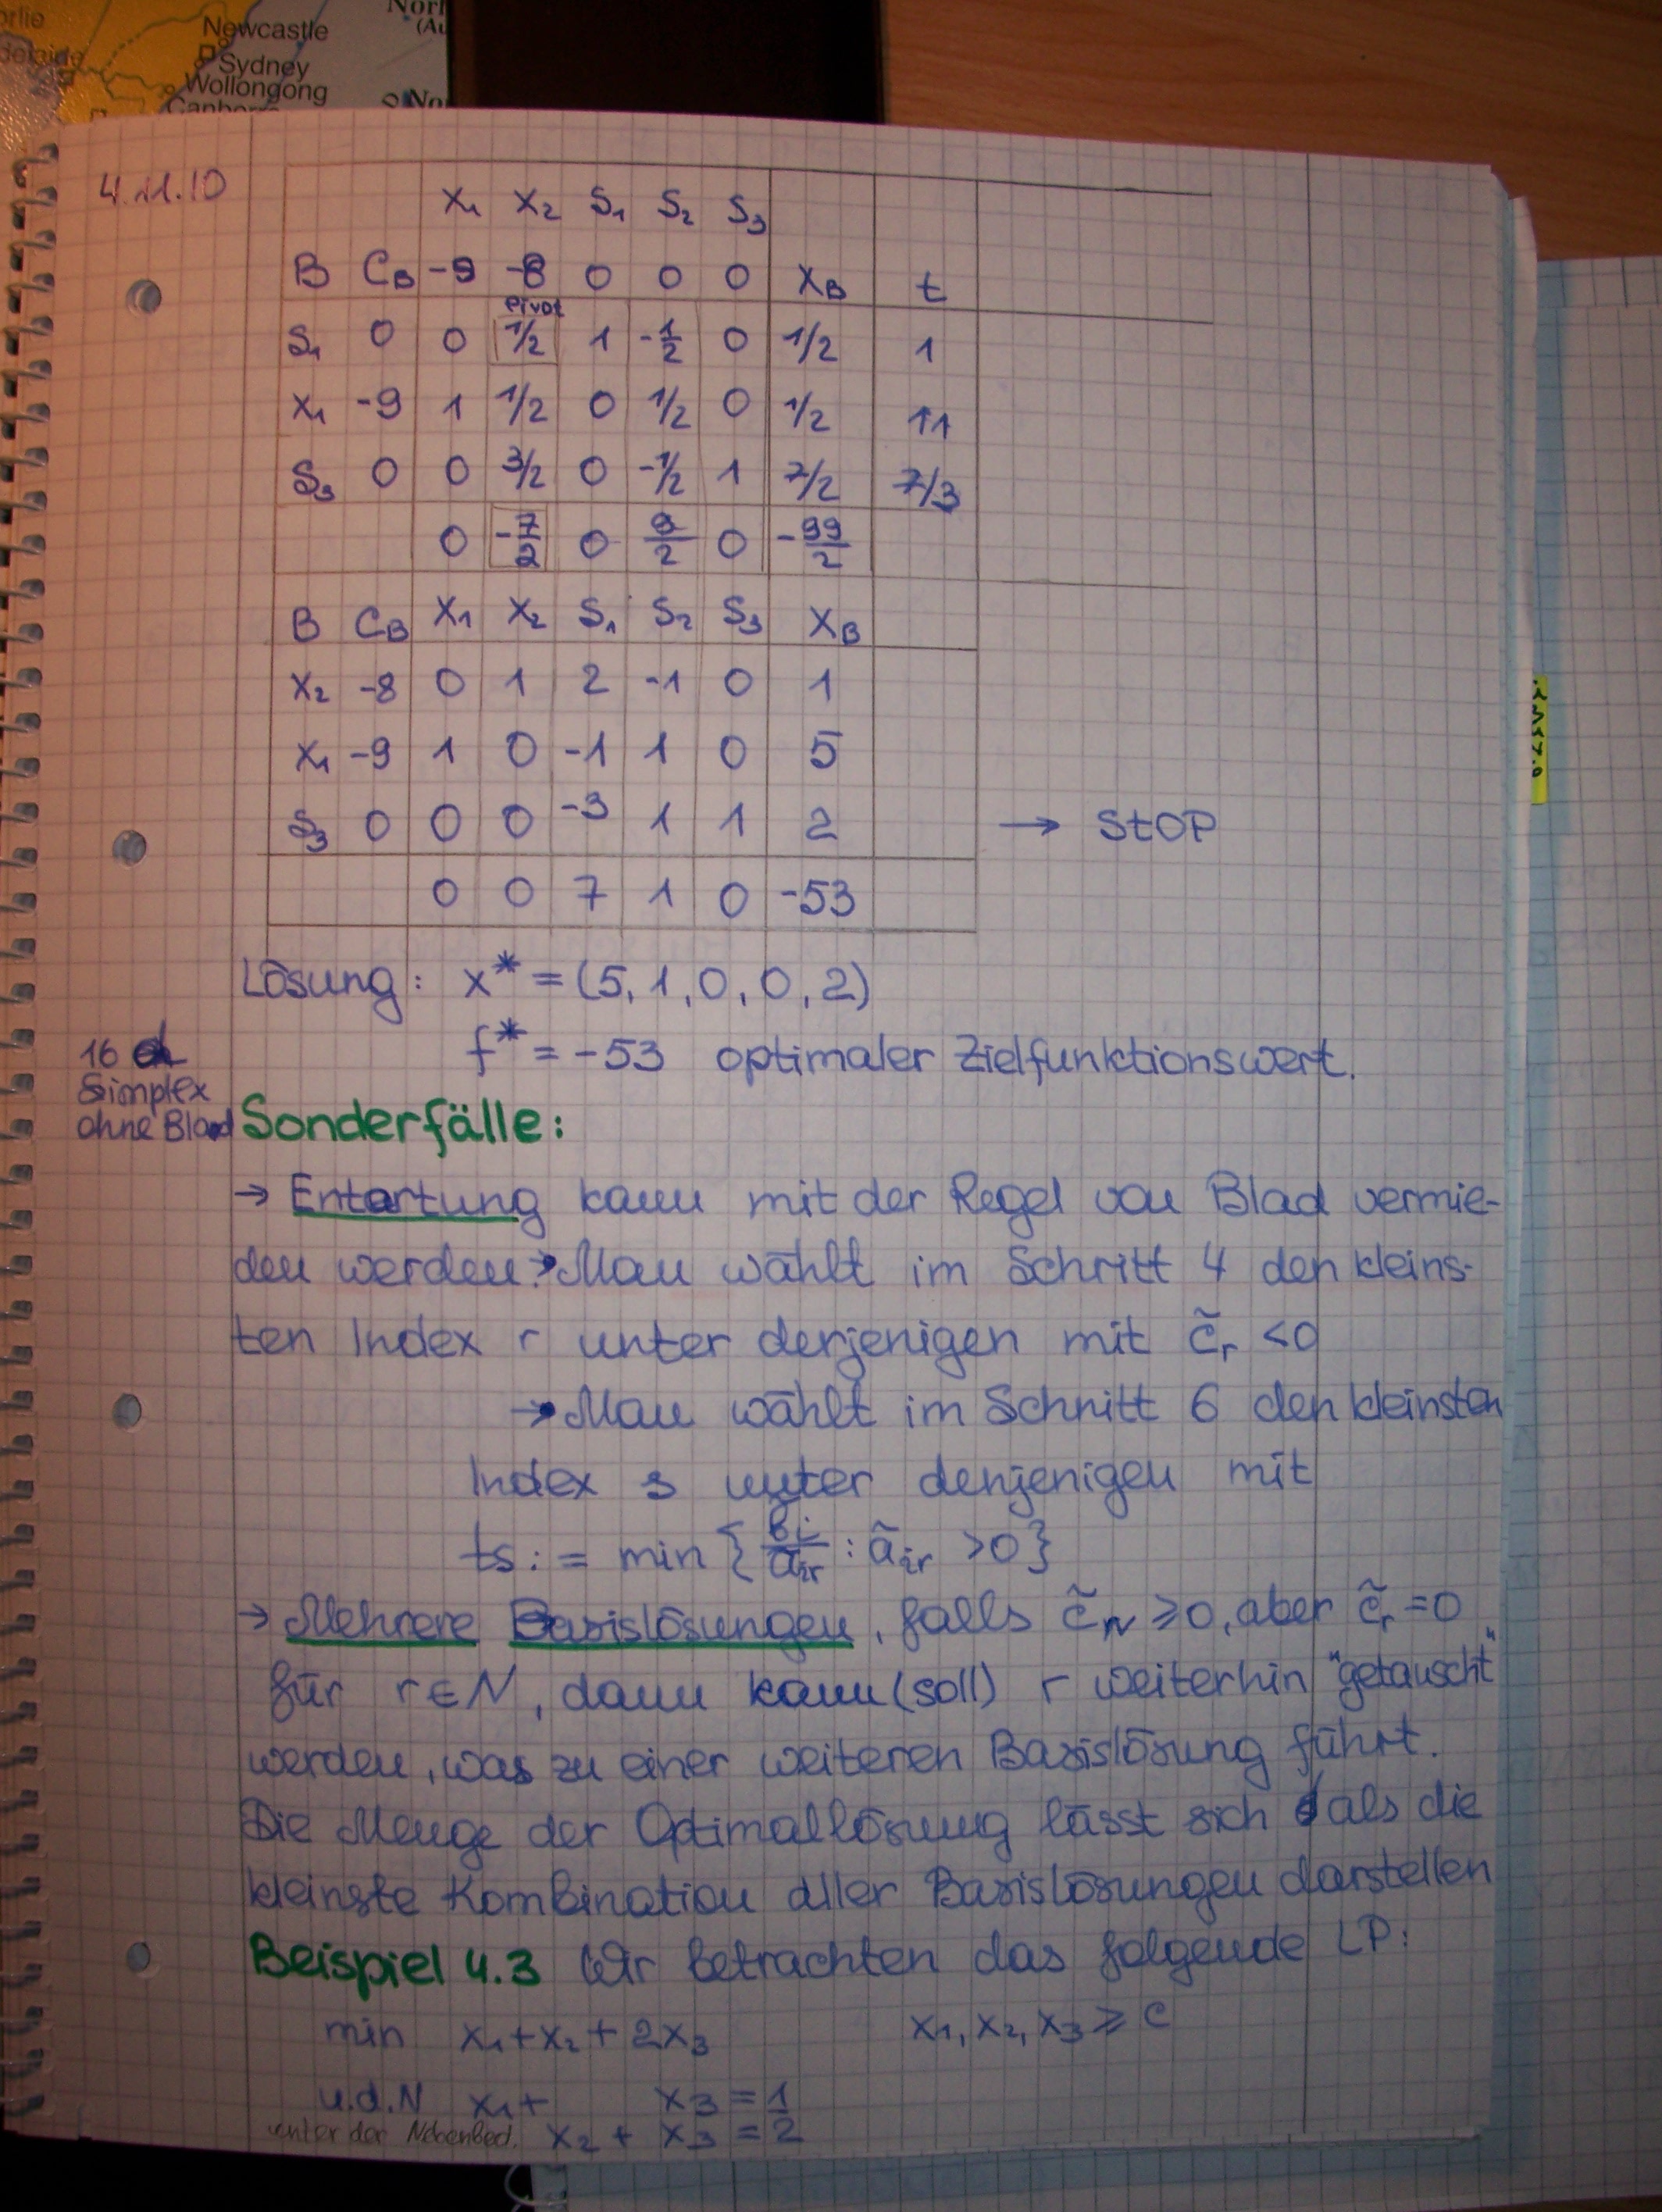 Newcastle
Sydney
Wollongong
4.11.10
x₁ x₂ S₁ S₂ S₃
B C_B -9 -8 0 0 0 x_B t
Pivot
S₁ 0 0 1/2 1 -1/2 0 1/2 1
x₁ -9 1 1/2 0 1/2 0 1/2 11
S₃ 0 0 3/2 0 -1/2 1 7/2 7/3
0 -7/2 0 9/2 0 -99/2
B C_B x₁ x₂ S₁ S₂ S₃ x_B
x₂ -8 0 1 2 -1 0 1
x₁ -9 1 0 -1 1 0 5
S₃ 0 0 0 -3 1 1 2 → StOP
0 0 7 1 0 -53
Lösung: x* = (5, 1, 0, 0, 2)
f* = -53 optimaler Zielfunktionswert.
16
Simplex
ohne Blad
Sonderfälle:
→ Entartung kann mit der Regel von Blad vermie-
den werden: → Man wählt im Schritt 4 den kleins-
ten Index r unter derjenigen mit c̃ᵣ < 0
→ Man wählt im Schritt 6 den kleinsten
Index s unter denjenigen mit
ts := min { b̃ᵢ/ãᵢᵣ : ãᵢᵣ > 0 }
→ Mehrere Basislösungen, falls c̃_N ≥ 0, aber c̃ᵣ = 0
für r ∈ N, dann kann (soll) r weiterhin "getauscht"
werden, was zu einer weiteren Basislösung führt.
Die Menge der Optimallösung lässt sich als die
kleinste Kombination aller Basislösungen darstellen
Beispiel 4.3 Wir betrachten das folgende LP:
min x₁ + x₂ + 2x₃ x₁, x₂, x₃ ≥ C
u.d.N x₁ + x₃ = 1
unter der Nebenbed. x₂ + x₃ = 2